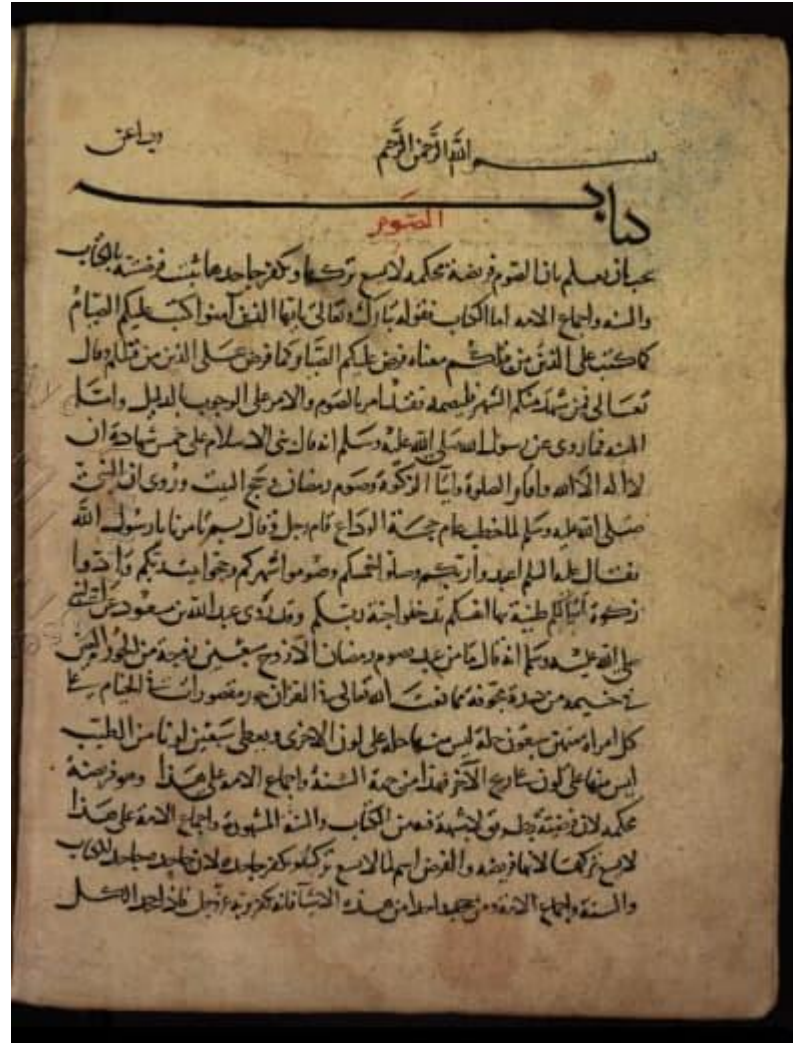 بسم الله الرحمن الرحيم
كتاب
الصوم
يجب ان يعلم بان الصوم فريضة محكمة لا يسع تركها ويكفر جاحدها ثبت فرضيته بالكتاب
والسنة واجماع الامة اما الكتاب فقوله تبارك وتعالى يا ايها الذين آمنوا كتب عليكم الصيام
كما كتب على الذين من قبلكم معناه فرض عليكم الصيام كما فرض على الذين من قبلكم وقال
تعالى فمن شهد منكم الشهر فليصمه فقد امر بالصوم والامر على الوجوب بالدليل واما
السنة فما روى عن رسول الله صلى الله عليه وسلم انه قال بنى الاسلام على خمس شهادة ان
لا اله الا الله واقام الصلوة وايتا الزكوة وصوم رمضان وحج البيت وروى ان النبي
صلى الله عليه وسلم لما خطب عام حجة الوداع قام رجل وقال بم تامرنا يا رسول الله
فقال عليه السلم اعبدوا ربكم وصلوا خمسكم وصوموا شهركم وحجوا بيت ربكم وادوا
زكوة اموالكم طيبة بها انفسكم تدخلوا جنة ربكم وقد روى عبد الله بن مسعود عن النبي
صلى الله عليه وسلم انه قال ما من عبد يصوم رمضان الا زوج سبعين زوجة من الحور العين
في خيمة من درة مجوفة مما نعت الله تعالى في القران حور مقصورات في الخيام على
كل امراة منهن سبعون حلة ليس منها حلة على لون الاخرى ويعطى سبعين لونا من الطيب
ليس منها على لون الاخر فهذا من جهة السنة واجماع الامة على هذا وهو فريضة
محكمة لان فرضيته بالكتاب والسنة المشهورة واجماع الامة على هذا
لا يسع تركها لانها فريضة والفرض اسم لما لا يسع تركه ويكفر جاحده لان جاحده جاحد للكتاب
والسنة واجماع الامة ومن جحد واحدا من هذه الاشيا فانه يكفر